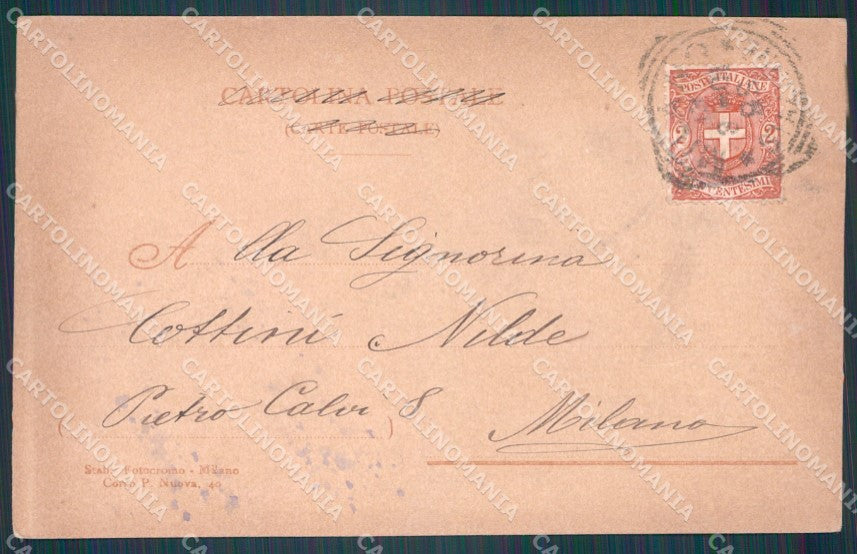 CARTOLINA POSTALE
(CARTE POSTALE)
POSTE ITALIANE
2 2
CENTESIMI
Alla Signorina
Cottini Nilde
(Pietro Calvi 8)
Milano
Stab. Fotocromo - Milano
Corso P. Nuova, 40
CARTOLINOMANIA